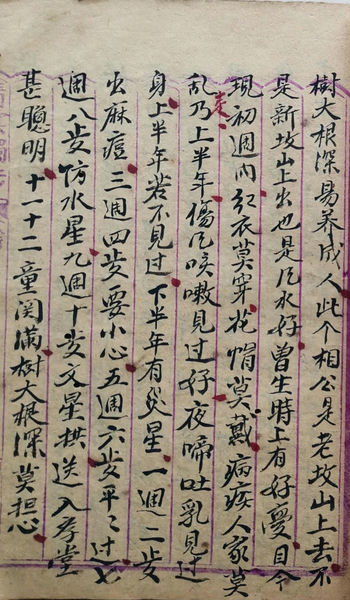 樹大根深易养成人此个相公是老坟山上去不
是新坟山上出也是風水好曽生時上有好慶目今
現初週内紅衣莫穿花帽莫戴病疾人家莫走
乱乃上半年傷風咳嗽見过好夜啼吐乳見过
身上半年若不見过下半年有災星一週二步
出麻痘三週四步要小心五週六步平〻过七
週八步防水星九週十步文星拱送入孝堂
甚聰明十一十二童関満樹大根深莫担心